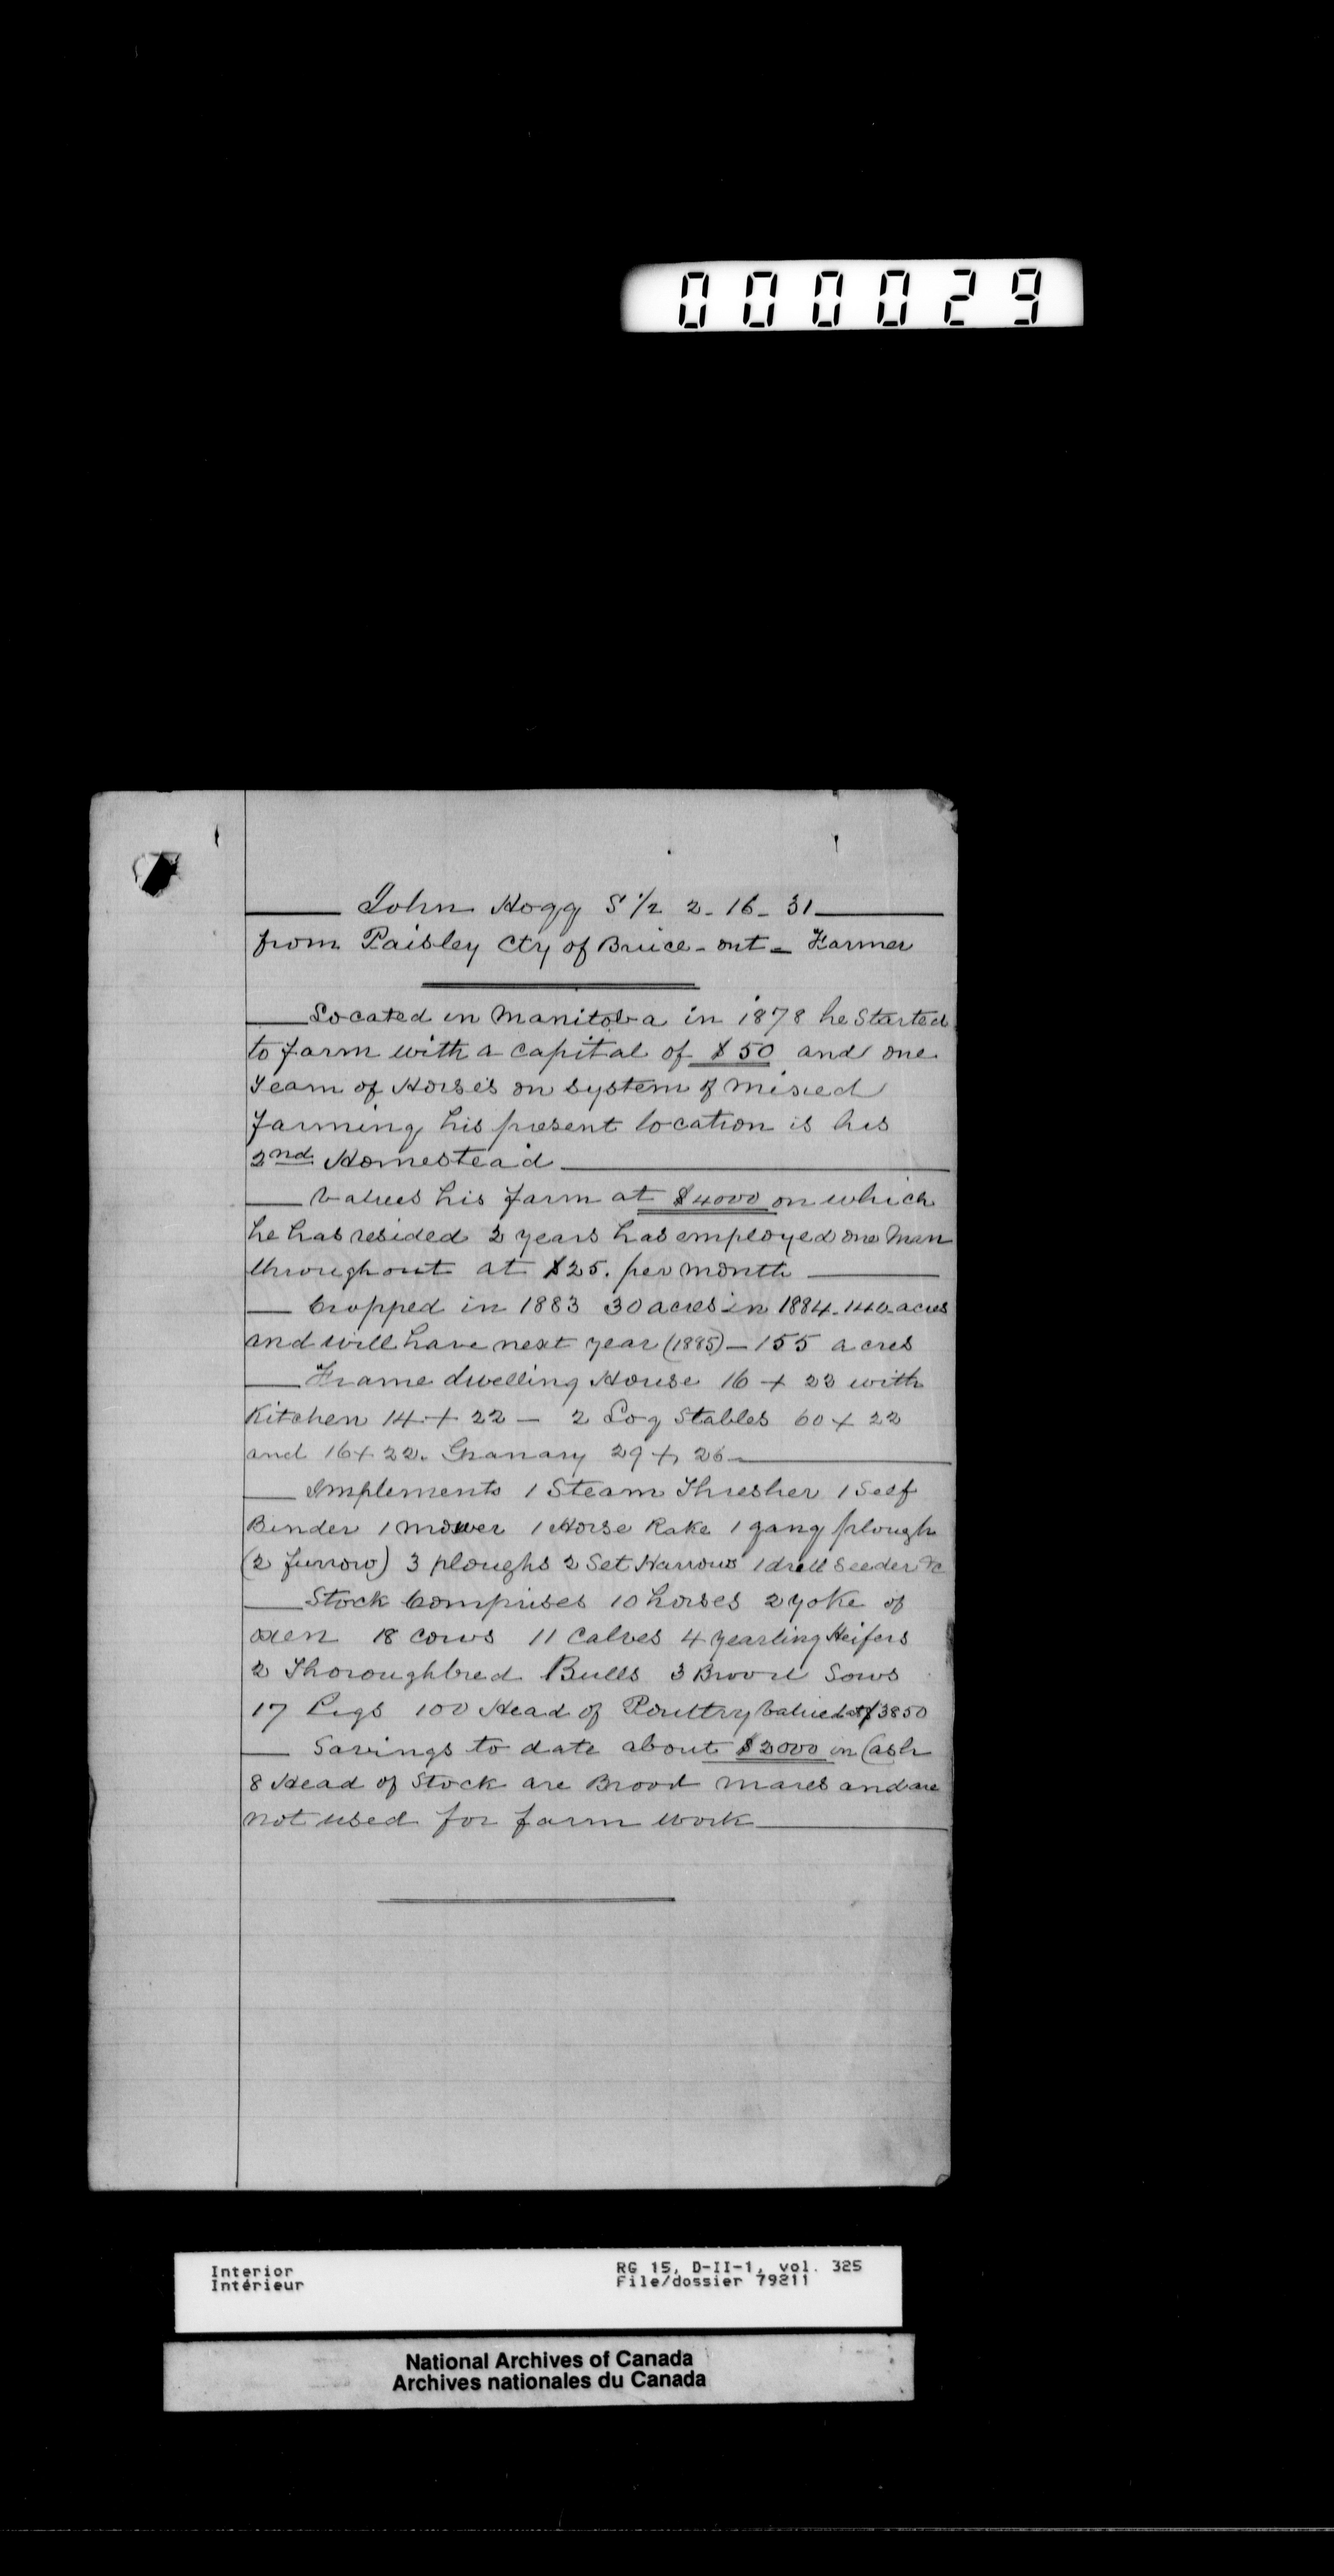 000029
John Hogg S 1/2 2-16-31
from Paisley Cty of Bruce - ont - Farmer
Located in Manitoba in 1878 he Started
to farm with a capital of $50 and one
Team of Horses on system of mixed
farming his present location is his
2nd Homestead
Values his farm at $4000 on which
he has resided 2 years has employed one Man
throughout at $25. per month
Cropped in 1883 30 acres in 1884 - 140 acres
and will have next year (1885) - 155 acres
Frame dwelling House 16 + 22 with
Kitchen 14 + 22 - 2 Log Stables 60 + 22
and 16 + 22. Granary 29 + 26
Implements 1 Steam Thresher 1 Self
Binder 1 mower 1 Horse Rake 1 gang plough
(2 furrow) 3 ploughs 2 Set Harrows 1 drill Seeder &c
Stock Comprises 10 horses 2 yoke of
oxen 18 cows 11 Calves 4 yearling Heifers
2 Thoroughbred Bulls 3 Brood Sows
17 Pigs 100 Head of Poultry Valued at $3850
Savings to date about $2000 in Cash
8 Head of Stock are Brood mares and are
not used for farm work
Interior RG 15, D-II-1, vol. 325
Intérieur File/dossier 79211
National Archives of Canada
Archives nationales du Canada